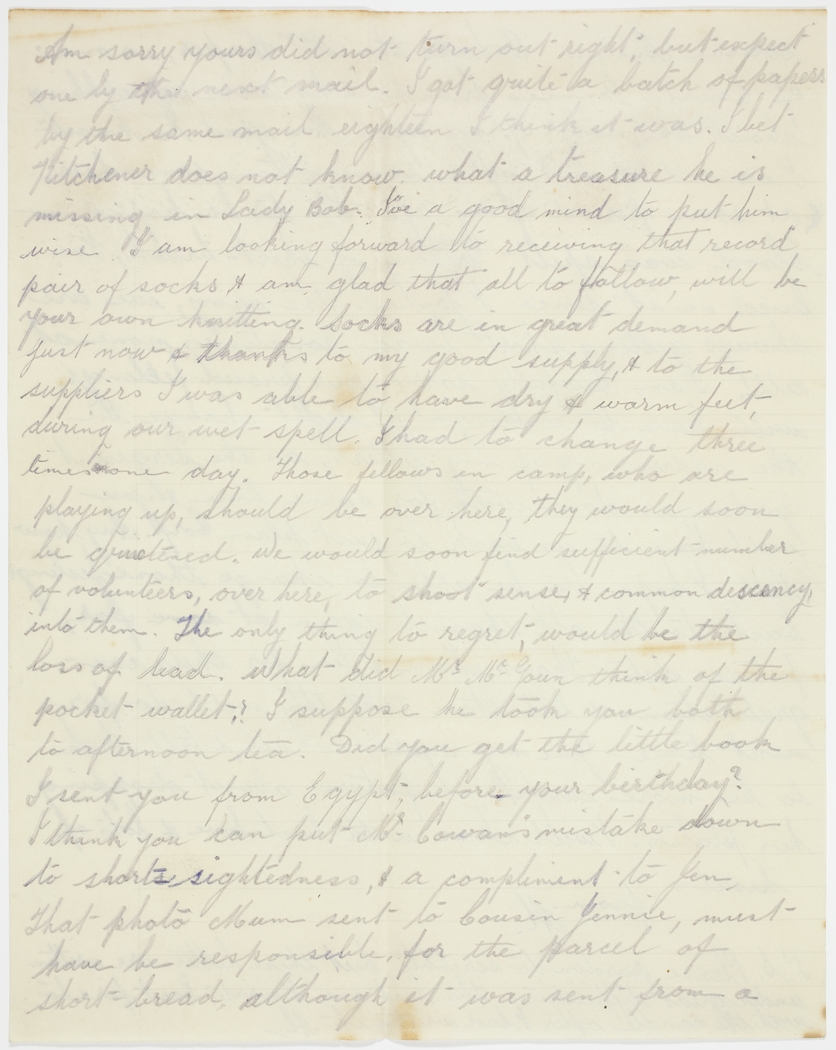 Am sorry yours did not turn out right, but expect
one by the next mail. I got quite a batch of papers
by the same mail eighteen I think it was. I bet
Kitchener does not know, what a treasure he is
missing in Lady Bob. I've a good mind to put him
wise. I am looking forward to receiving that record
pair of socks & am glad that all to follow, will be
your own knitting. Socks are in great demand
just now & thanks to my good supply, & to the
suppliers I was able to have dry & warm feet,
during our wet spell. I had to change three
times one day. Those fellows in camp, who are
playing up, should be over here, they would soon
be quietened. We would soon find sufficient number
of volunteers, over here, to shoot sense, & common descency,
into them. The only thing to regret, would be the
loss of lead. What did Mr. think of the
pocket wallet? I suppose he took you both
to afternoon tea. Did you get the little book
I sent you from Egypt, before your birthday?
I think you can put Mr. Cowan's mistake down
to short sightedness, & a compliment to Jen.
That photo Mum sent to Cousin Jennie, must
have be responsible, for the parcel of
short-bread, although it was sent from a